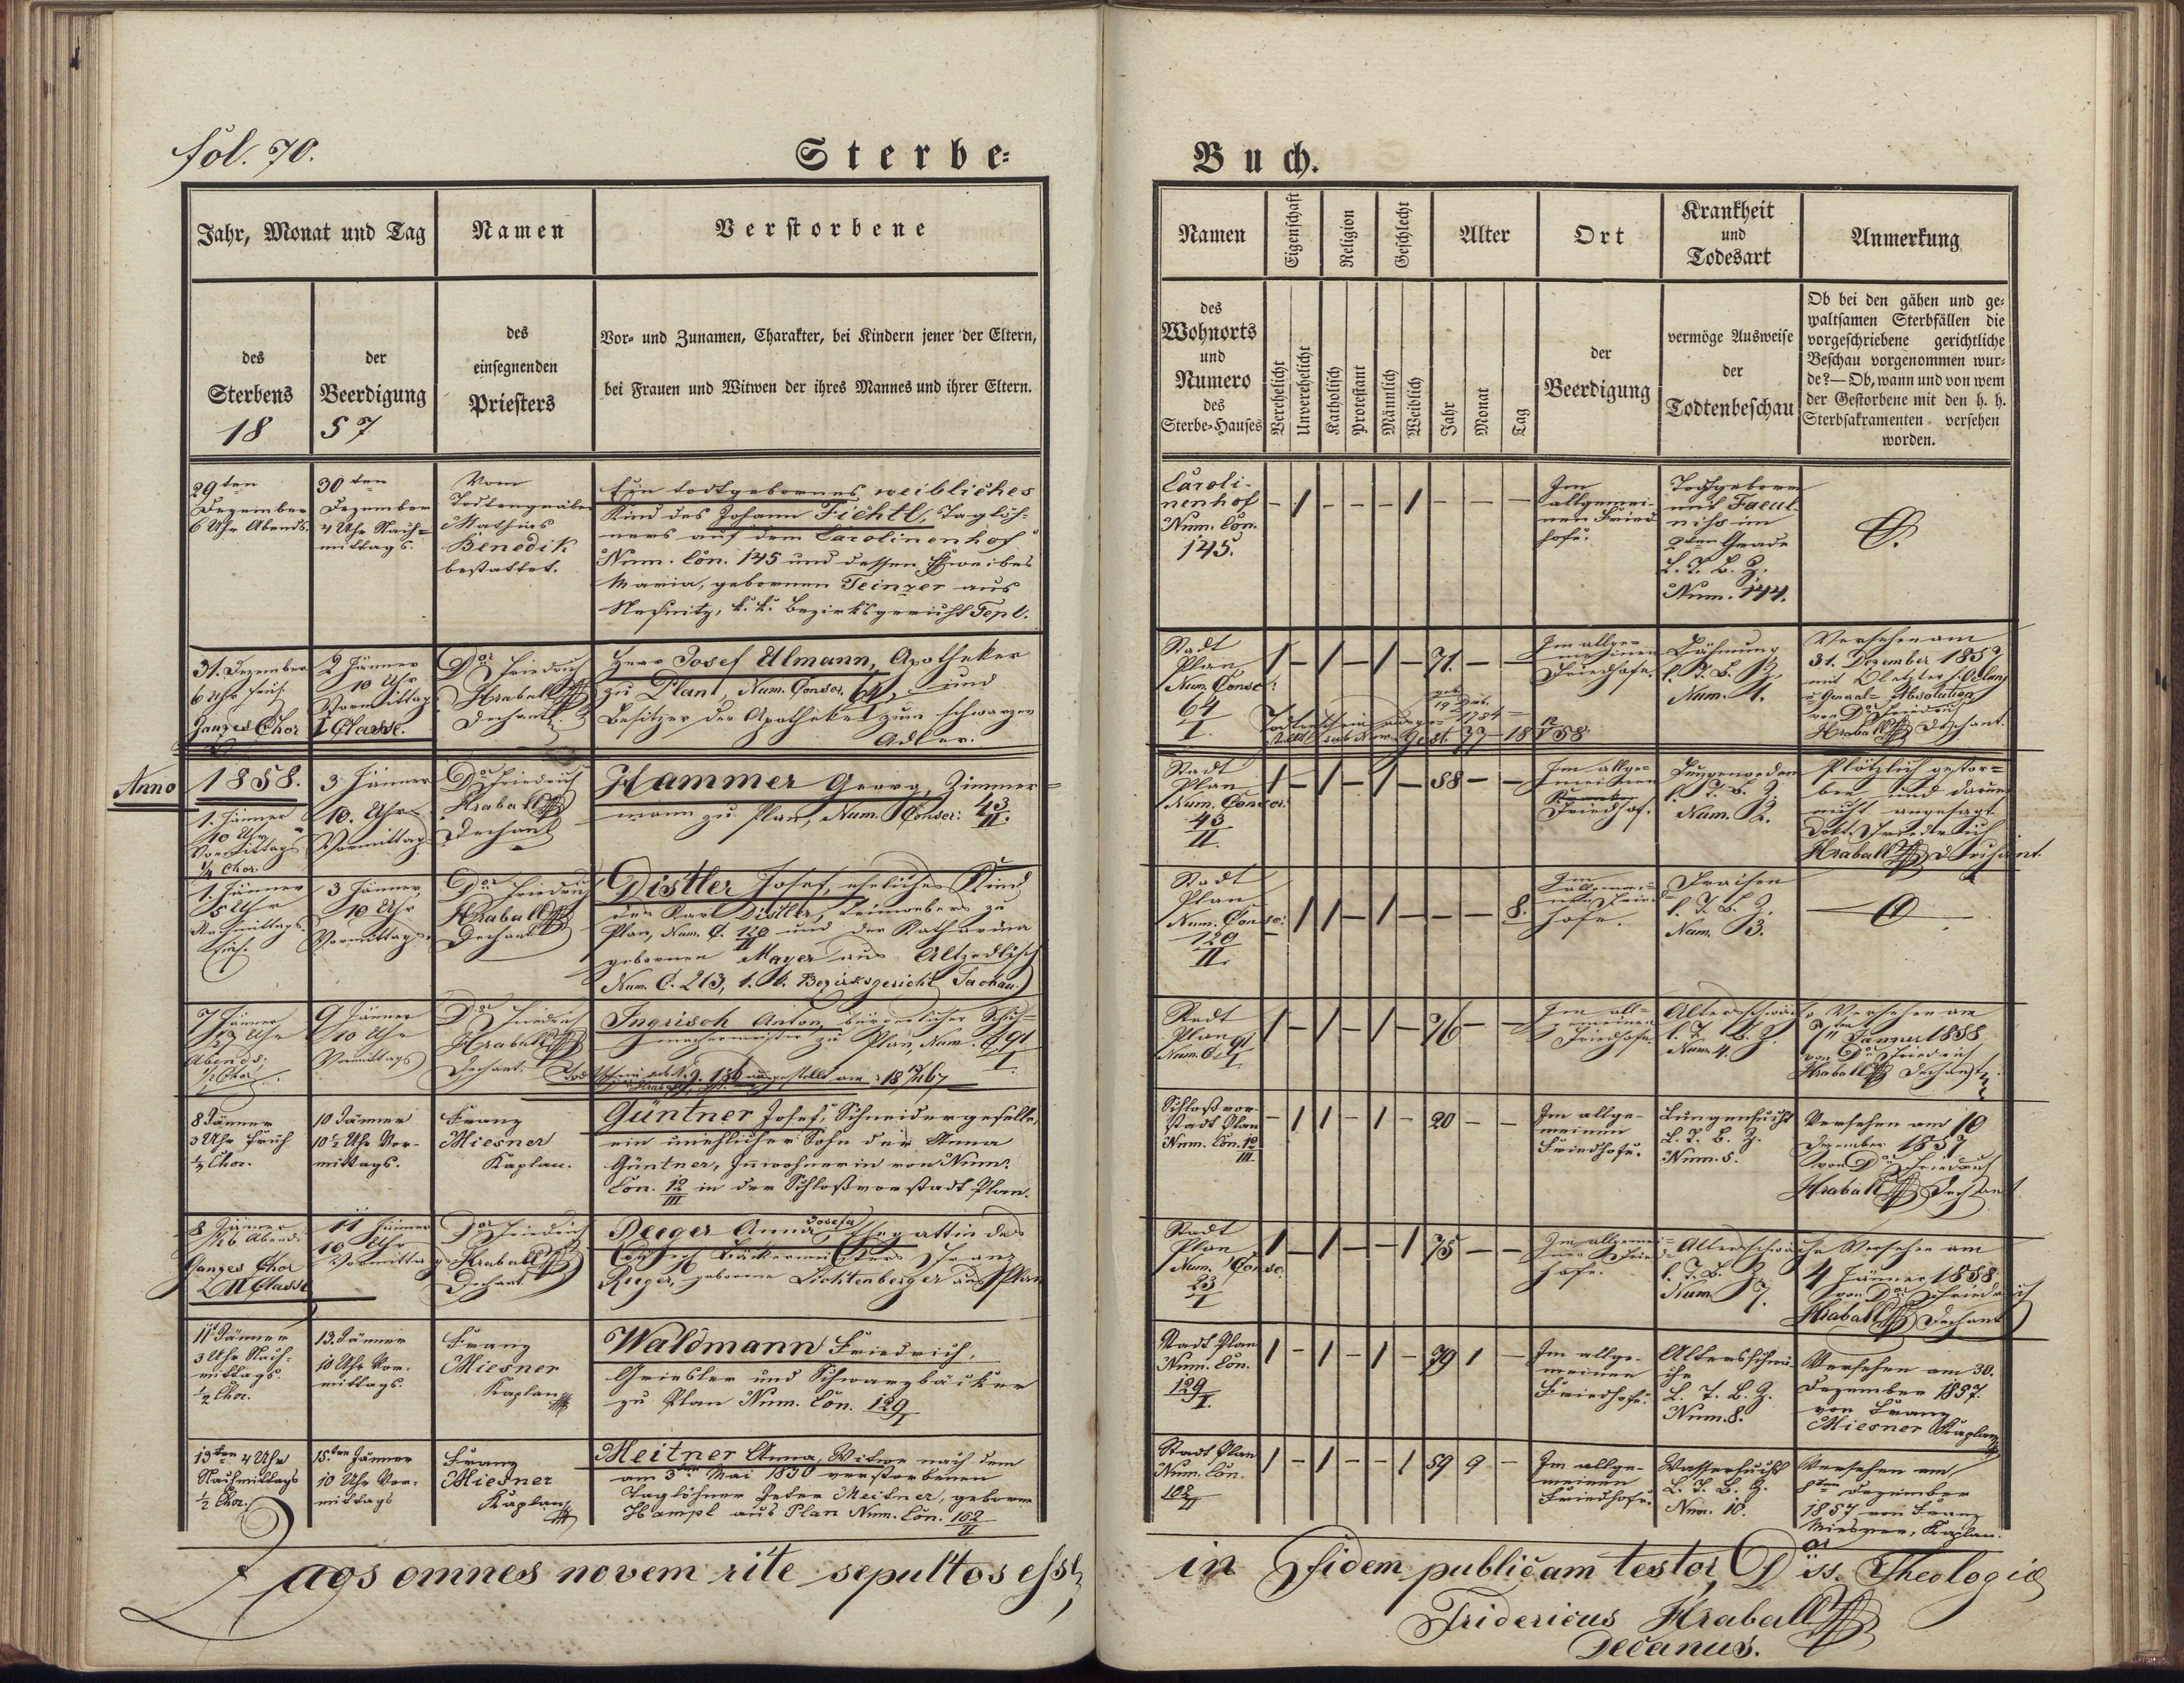 fol. 70.
Sterbe=
Jahr, Monat und Tag
Namen
Verstorbene
des
Sterbens
18
der
Beerdigung
57
des
einsegnenden
Priesters
Vor- und Zunamen, Charakter, bei Kindern jener der Eltern,
bei Frauen und Witwen der ihres Mannes und ihrer Eltern.
29ten
Dezember
6 Uhr Abends.
30ten
Dezember
4 Uhr Nach=
mittags.
Vom
Todtengräber
Mathias
Benedik
bestattet.
Ein todtgebornes weibliches
Kind des Johann Fichtl, Taglöh-
ners auf dem Carolinenhof
Num. Con. 145 und dessen Eheweibes
Maria, gebornen Teinzer aus
k. k. Bezirksgericht Tepl.
31. Dezember
6 Uhr früh
Ganzes Chor
2 Jänner
10 Uhr
Vormittag
I Classe.
Dor Friedrich
Hraball
Dechant.
Herr Josef Ulmann, Apotheker
zu Plan, Num. Conscr. 64/I, und
Besitzer der Apotheke zum schwarzen
Adler.
Anno
1858.
1. Jänner
10 Uhr
Vormittags
1/4 Chor.
3 Jänner
10. Uhr
Vormittag
Dor Friedrich
Hraball
Dechant
Hammer Georg, Zimmer=
mann zu Plan, Num. Conscr: 43/II.
1. Jänner
5 Uhr
Nachmittags
3 Jänner
10 Uhr
Vormittag
Dor Friedrich
Hraball
Dechant
Distler Josef, eheliches Kind
des Karl Distler, Leinwebers zu
Plan, Num. C. 120/II und der Katharina
gebornen Mayer aus Altzedlisch
Num. C. 213, k. k. Bezirksgericht Tachau.
7 Jänner
1/2 9 Uhr
Abends.
1/2 Chor.
9 Jänner
10 Uhr
Vormittags
Dor Friedrich
Hraball
Dechant.
Ingrisch Anton, bürgerlicher Schuh=
machermeister zu Plan, Num. C. 91/I
Todtschein ausgestellt am
8 Jänner
3 Uhr früh
1/2 Chor.
10 Jänner
10 1/2 Uhr Vor-
mittags.
Franz
Miesner
Kaplan.
Güntner Josef, Schneidergeselle,
ein unehlicher Sohn der Anna
Güntner, Innwohnerin von Num.
Con. 12/III in der Schloßvorstadt Plan.
8 Jänner
1/2 6 Abends
Ganzes Chor
II Classe
11 Jänner
10 Uhr
Vormittag
Dor Friedrich
Hraball
Dechant
Rieger Anna Josefa, Ehegattin des
Bäckermeisters Franz
Rieger, geborne Lichtenberger aus Plan
11t Jänner
3 Uhr Nach-
mittags.
1/2 Chor.
13. Jänner
10 Uhr Vor-
mittags.
Franz
Miesner
Kaplan
Waldmann Friedrich,
Griesler und Schwarzbäcker
zu Plan Num. Con. 129/I
13ten 4 Uhr
Nachmittags
1/2 Chor.
15.ten Jänner
10 Uhr Vor-
mittags
Franz
Miesner
Kaplan
Meitner Anna, Witwe nach dem
am 3ten Mai 1850 verstorbenen
Taglöhner Peter Meitner, geborne
Hampl aus Plan Num. Con. 102/II
omnes novem rite sepultos esse,
Buch.
Namen
Eigenschaft
Religion
Geschlecht
Alter
Ort
Krankheit
und
Todesart
Anmerkung
des
Wohnorts
und
Numero
des
Sterbe-Hauses
Verehelicht
Unverehelicht
Katholisch
Protestant
Männlich
Weiblich
Jahr
Monat
Tag
der
Beerdigung
vermöge Ausweise
der
Todtenbeschau
Ob bei den gähen und ge-
waltsamen Sterbfällen die
vorgeschriebene gerichtliche
Beschau vorgenommen wur-
de?—Ob, wann und von wem
der Gestorbene mit den h. h.
Sterbsakramenten versehen
worden.
Caroli-
nenhof
Num. Con.
145.
– 1 – – – 1 – – –
Im
allgemei-
nen Fried
hofe.
Todtgeboren
und Faeul-
niss im
2ten Grade
L. T. B. Z.
Num. 144.
Stadt
Plan
Num. Conscr:
64
I.
1 – 1 – 1 – 71. – –
Im allge=
meinen
Friedhofe.
Lähmung
l. T. B. Z.
Num. 1.
Versehen am
31. Dezember 1857
mit letzter Oelung
General-Absolution
von Dor Friedrich
Hraball Dechant.
Stadt
Plan
Num. Conscr:
43
II.
1 – 1 – 1 – 58 – –
Im allge=
meinen
Friedhof.
l. T. B. Z.
Num. 2.
Plötzlich gestor=
ben und darum
nicht angesagt
Friedrich
Hraball Dechant.
Stadt
Plan
Num. Conscr:
120
II.
– 1 1 – 1 – – – 8.
Im
allgemei=
nen Fried=
hofe.
Fraisen
l. T. B. Z.
Num. 3.
Stadt
Plan
Num. C. 91/I
1 – 1 – 1 – 76 – –
Im all=
gemeinen
Friedhofe.
Altersschwäche
l. T. B. Z.
Num. 4.
Versehen am
7ten Januer 1858
von Dor Friedrich
Hraball Dechant
Schloßvor-
stadt Plan
Num. Con. 12/III.
– 1 1 – 1 – 20 – –
Im allge-
meinen
Friedhofe.
Lungensucht
L. T. B. Z.
Num. 5.
Versehen am 10
Dezember 1857
von Dor Friedrich
Hraball Dechant
Stadt
Plan
Num. Conscr.
23
I
1 – 1 – – 1 75 – –
Im allgemei=
nen Fried=
hofe.
Altersschwäche
l. T. B. Z.
Num. 7.
Versehen am
4 Jänner 1858
von Dor Friedrich
Hraball Dechant
Stadt Plan
Num. Con.
129
I.
1 – 1 – 1 – 79 1 –
Im allge-
meinen
Friedhofe.
Altersschwä-
che
L. T. B. Z.
Num. 8.
Versehen am 30.
Dezember 1857.
von Franz
Miesner Kaplan
Stadt Plan
Num. Con.
102
II
1 – 1 – – 1 59 9 –
Im allge-
meinen
Friedhofe.
Wassersucht
L. T. B. Z.
Num. 10.
Versehen am
8ten Dezember
1857 von Franz
Miesner, Kaplan.
in fidem publicam testor, Dor ss. Theologiae
Fridericus Hraball
Decanus.